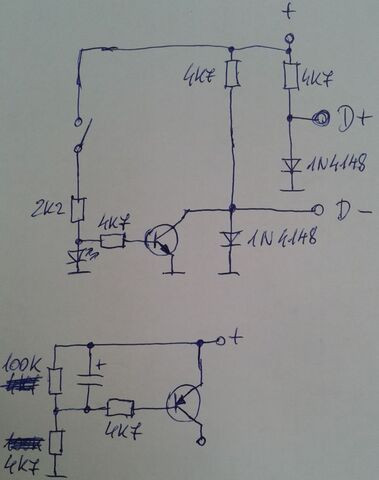 +
4K7
4K7
D+
1N4148
2K2
4K7
D-
1N4148
+
100K
+
4K7
4K7